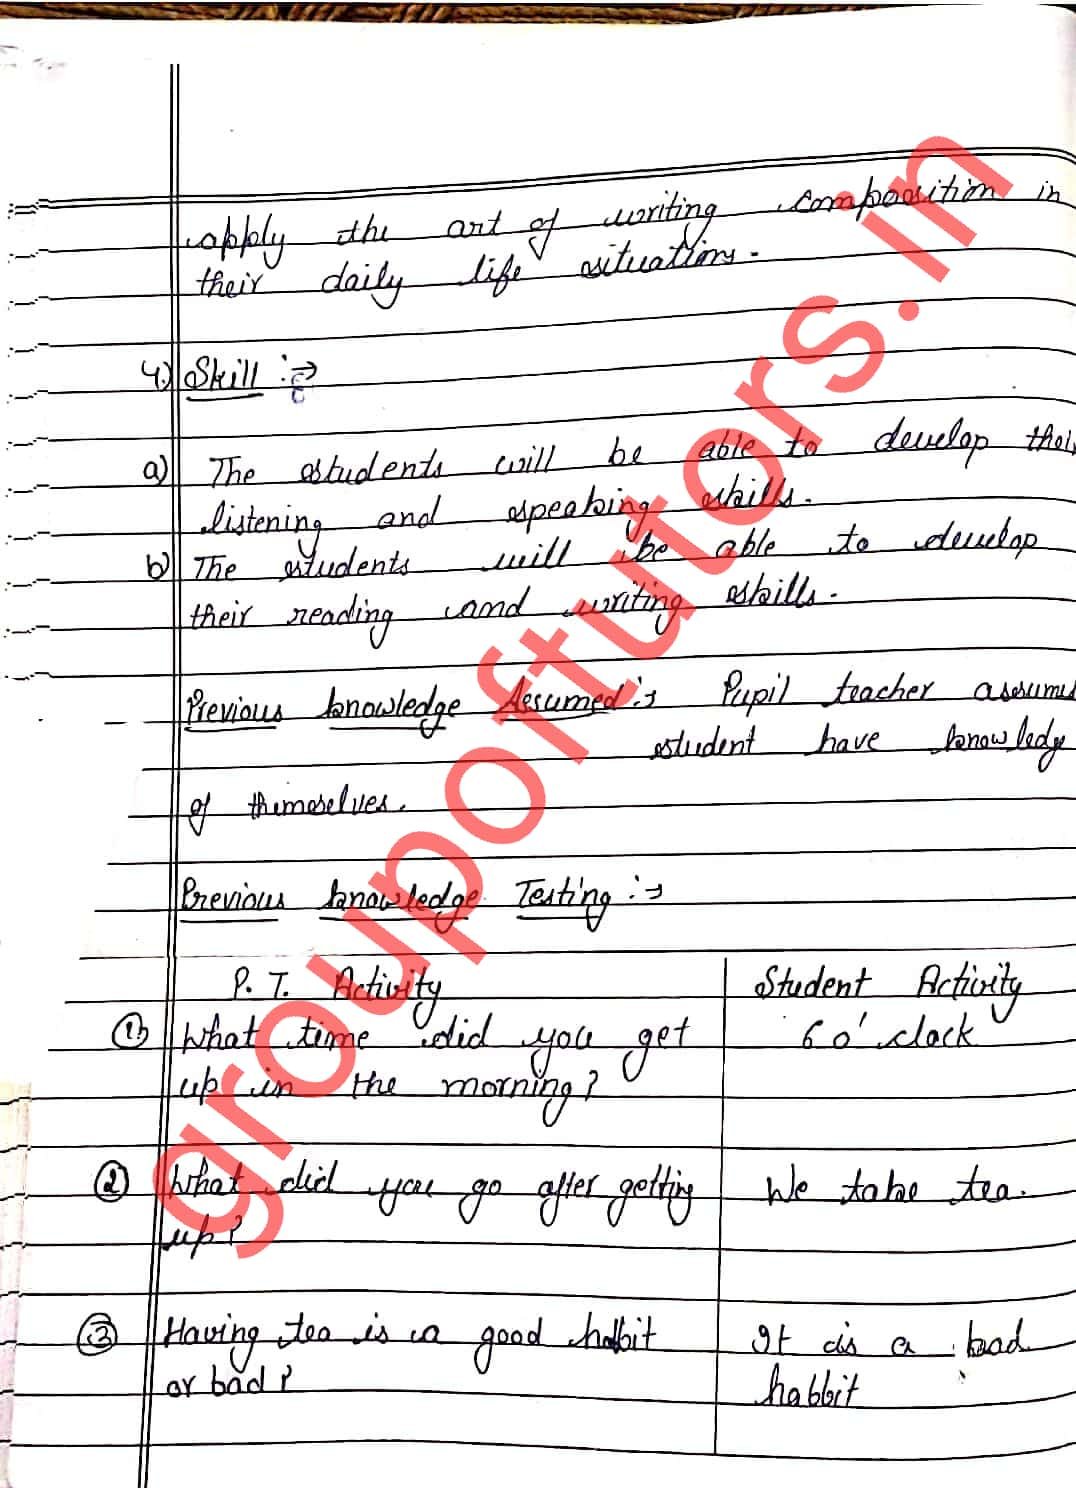 apply the art of writing composition in
their daily life situations.
4.) Skill :⇒
a) The students will be able to develop their
listening and speaking skills.
b) The students will be able to develop
their reading and writing skills.
Previous knowledge Assumed :⇒ Pupil teacher assume
student have knowledge
of themselves.
Previous knowledge Testing :⇒
P. T. Activity Student Activity
① What time did you get 6 o' clock
up in the morning?
② What did you go after getting We take tea.
up?
③ Having tea is a good habbit It is a bad
or bad? habbit
groupoftutors.in